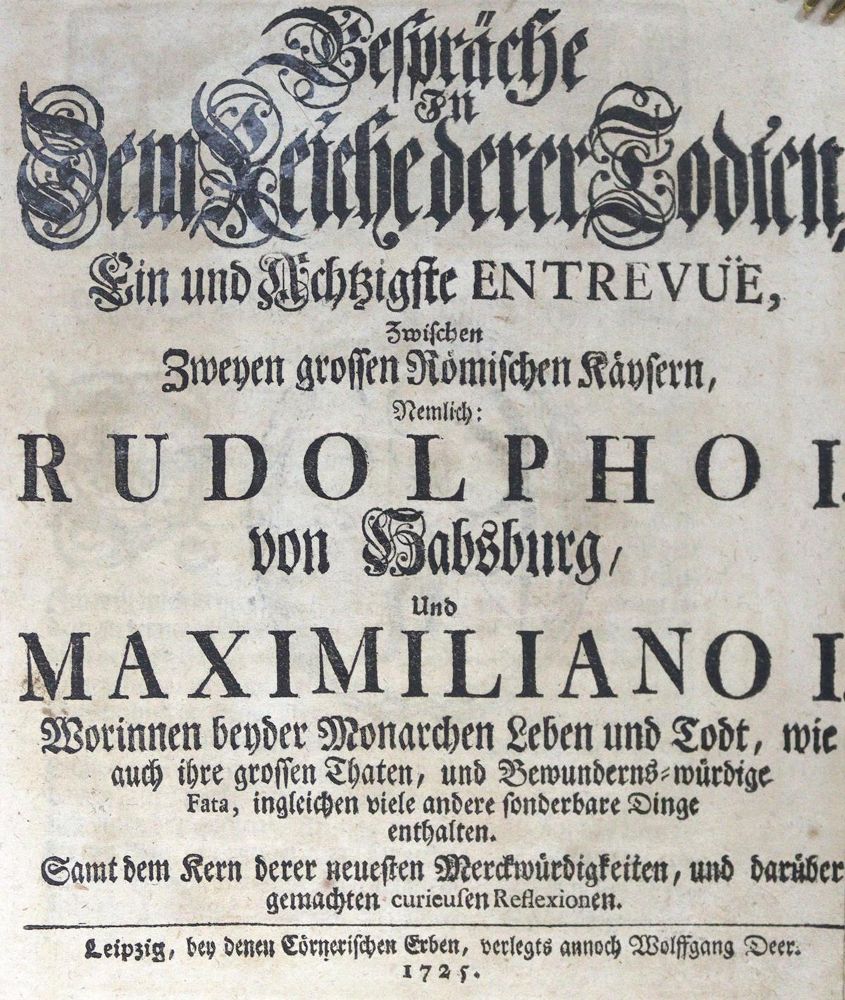 Gespräche
In
Dem Reiche derer Todten,
Ein und Achtzigste ENTREVUË,
Zwischen
Zweyen grossen Römischen Käysern,
Nemlich:
RUDOLPHO I.
von Habsburg,
Und
MAXIMILIANO I.
Worinnen beyder Monarchen Leben und Todt, wie
auch ihre grossen Thaten, und Bewunderns-würdige
Fata, ingleichen viele andere sonderbare Dinge
enthalten.
Samt dem Kern derer neuesten Merckwürdigkeiten, und darüber
gemachten curieusen Reflexionen.
Leipzig, bey denen Cörnerischen Erben, verlegts annoch Wolffgang Deer.
1725.